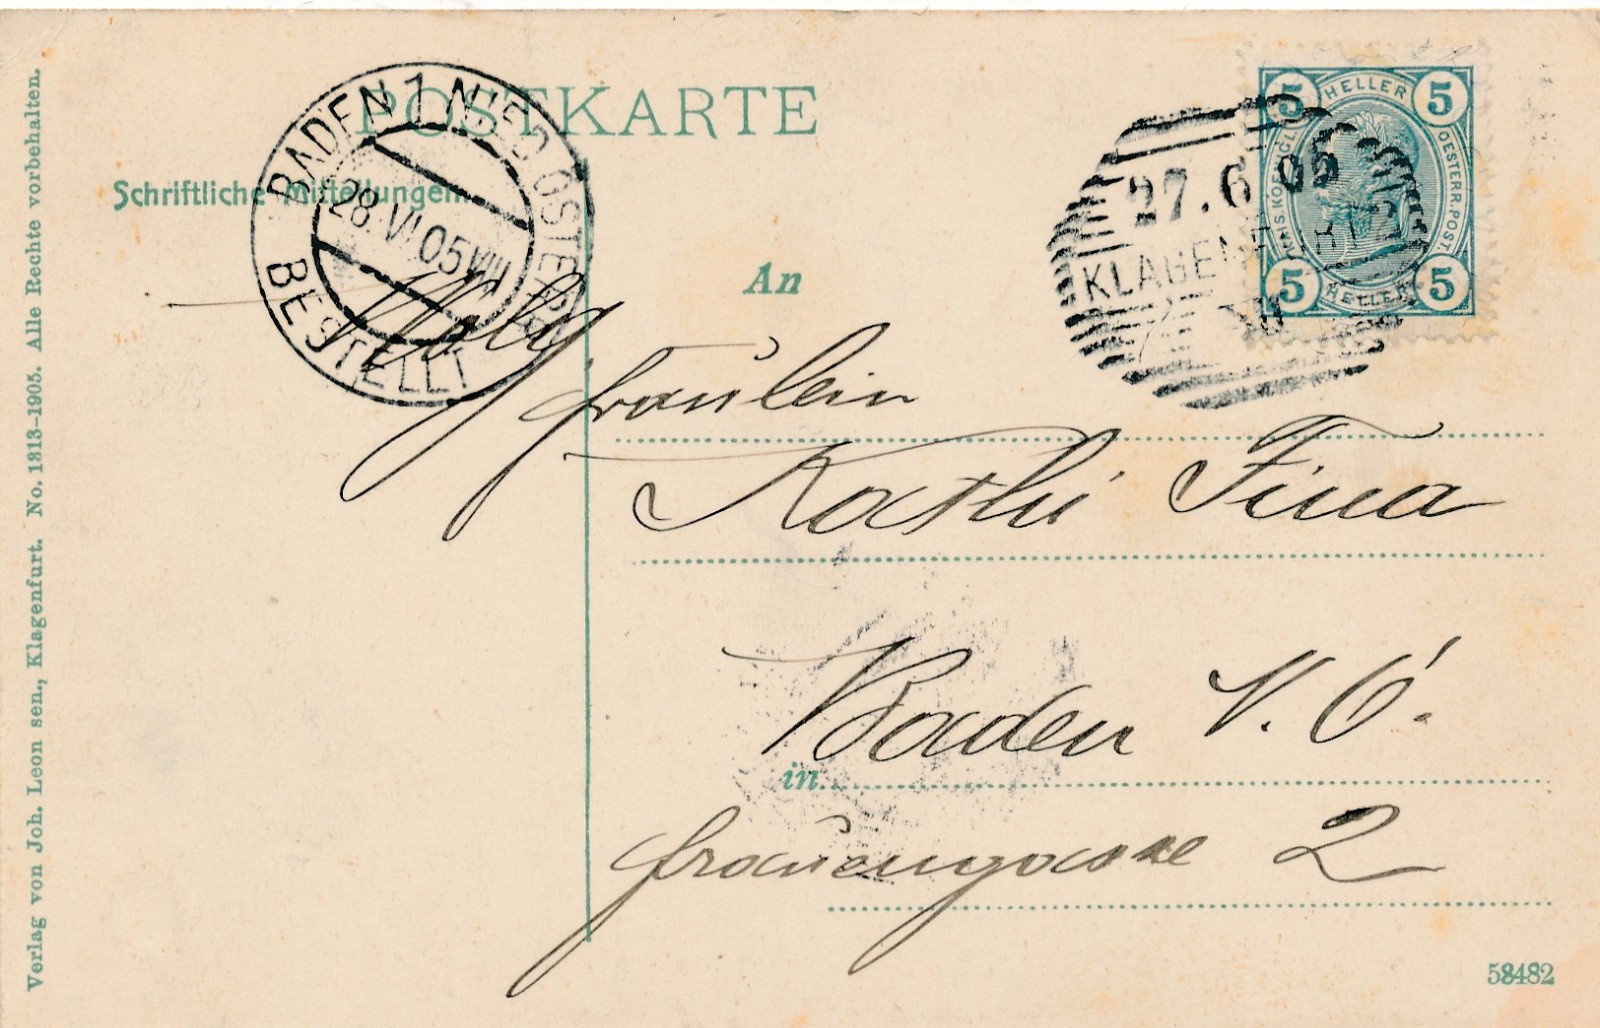 POSTKARTE
Schriftliche Mitteilungen.
BADEN 1 NIED.ÖSTERR.
28.VI.05 VIII
BESTELLT
5 HELLER 5
KHS.KÖNIGL.
OESTERR.POST.
5 HELLER 5
27.6 05
KLAGENFURT 2
An
Wohlg
Fräulein
Kathi Fina
in Baden N. Ö.
Frauengasse 2
Verlag von Joh. Leon sen., Klagenfurt. No. 1313–1905. Alle Rechte vorbehalten.
58482